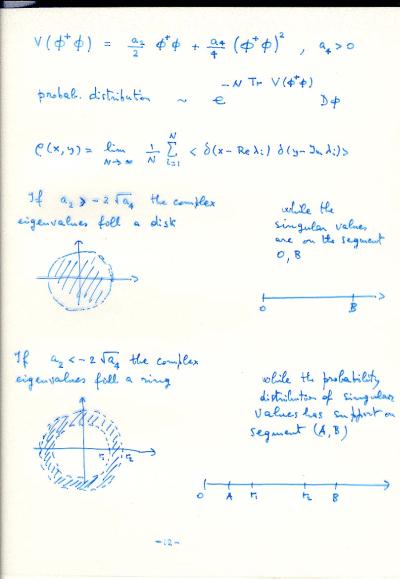 V(ϕ⁺ϕ) = a₂/2 ϕ⁺ϕ + a₄/4 (ϕ⁺ϕ)² , a₄>0
probab. distribution ~ e^{-N Tr V(ϕ⁺ϕ)} Dϕ
ρ(x,y) = lim_{N→∞} 1/N Σ_{i=1}^{N} < δ(x-Reλᵢ) δ(y-Imλᵢ)>
If a₂ > -2√a₄ the complex
eigenvalues fill a disk
while the
singular values
are on the segment
0, B
0 B
If a₂ < -2√a₄ the complex
eigenvalues fill a ring
while the probability
distribution of singular
values has support on
segment (A,B)
r₁ r₂
0 A r₁ r₂ B
-12-